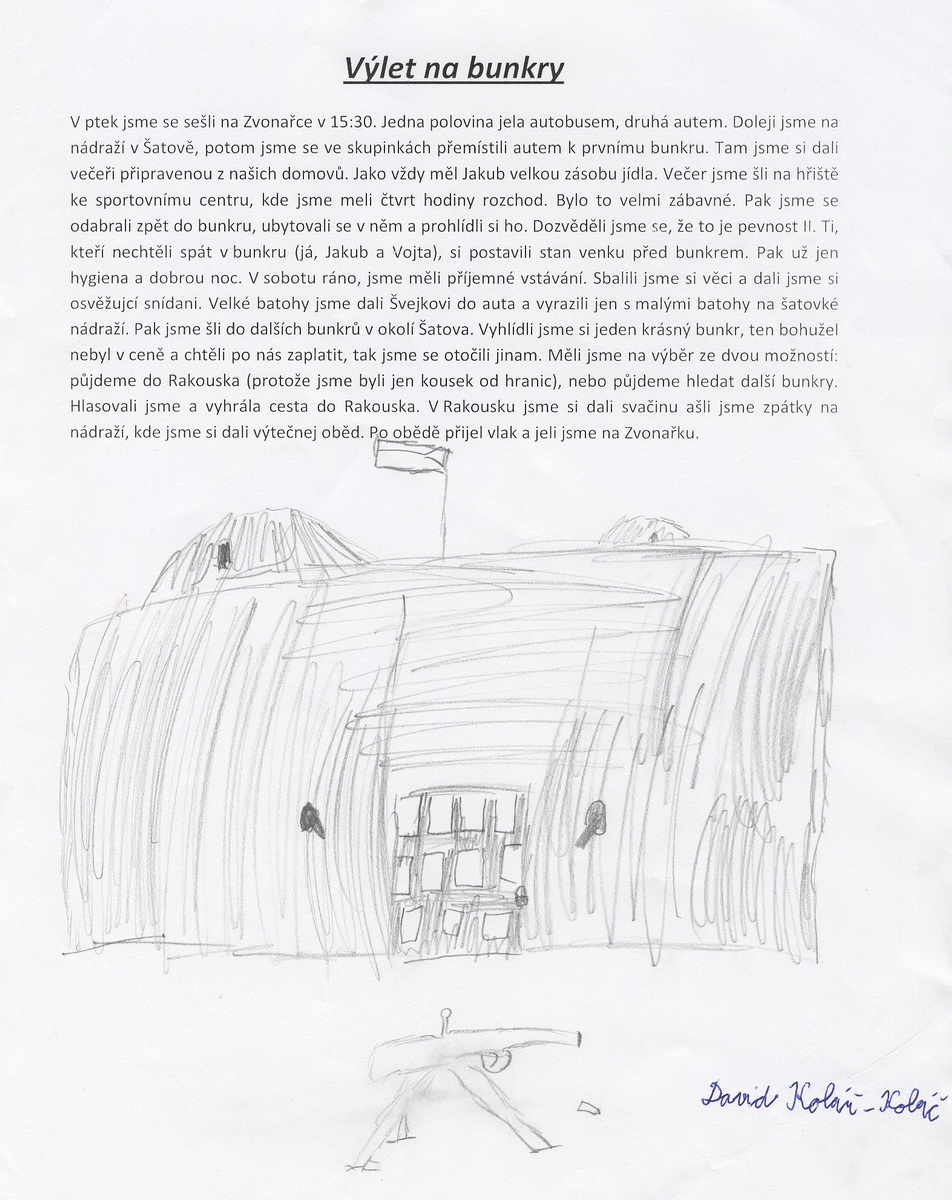 Výlet na bunkry
V ptek jsme se sešli na Zvonařce v 15:30. Jedna polovina jela autobusem, druhá autem. Doleji jsme na
nádraží v Šatově, potom jsme se ve skupinkách přemístili autem k prvnímu bunkru. Tam jsme si dali
večeři připravenou z našich domovů. Jako vždy měl Jakub velkou zásobu jídla. Večer jsme šli na hřiště
ke sportovnímu centru, kde jsme meli čtvrt hodiny rozchod. Bylo to velmi zábavné. Pak jsme se
odabrali zpět do bunkru, ubytovali se v něm a prohlídli si ho. Dozvěděli jsme se, že to je pevnost II. Ti,
kteří nechtěli spát v bunkru (já, Jakub a Vojta), si postavili stan venku před bunkrem. Pak už jen
hygiena a dobrou noc. V sobotu ráno, jsme měli příjemné vstávání. Sbalili jsme si věci a dali jsme si
osvěžující snídani. Velké batohy jsme dali Švejkovi do auta a vyrazili jen s malými batohy na šatovké
nádraží. Pak jsme šli do dalších bunkrů v okolí Šatova. Vyhlídli jsme si jeden krásný bunkr, ten bohužel
nebyl v ceně a chtěli po nás zaplatit, tak jsme se otočili jinam. Měli jsme na výběr ze dvou možností:
půjdeme do Rakouska (protože jsme byli jen kousek od hranic), nebo půjdeme hledat další bunkry.
Hlasovali jsme a vyhrála cesta do Rakouska. V Rakousku jsme si dali svačinu ašli jsme zpátky na
nádraží, kde jsme si dali výtečnej oběd. Po obědě přijel vlak a jeli jsme na Zvonařku.
David Kolář-Koláč